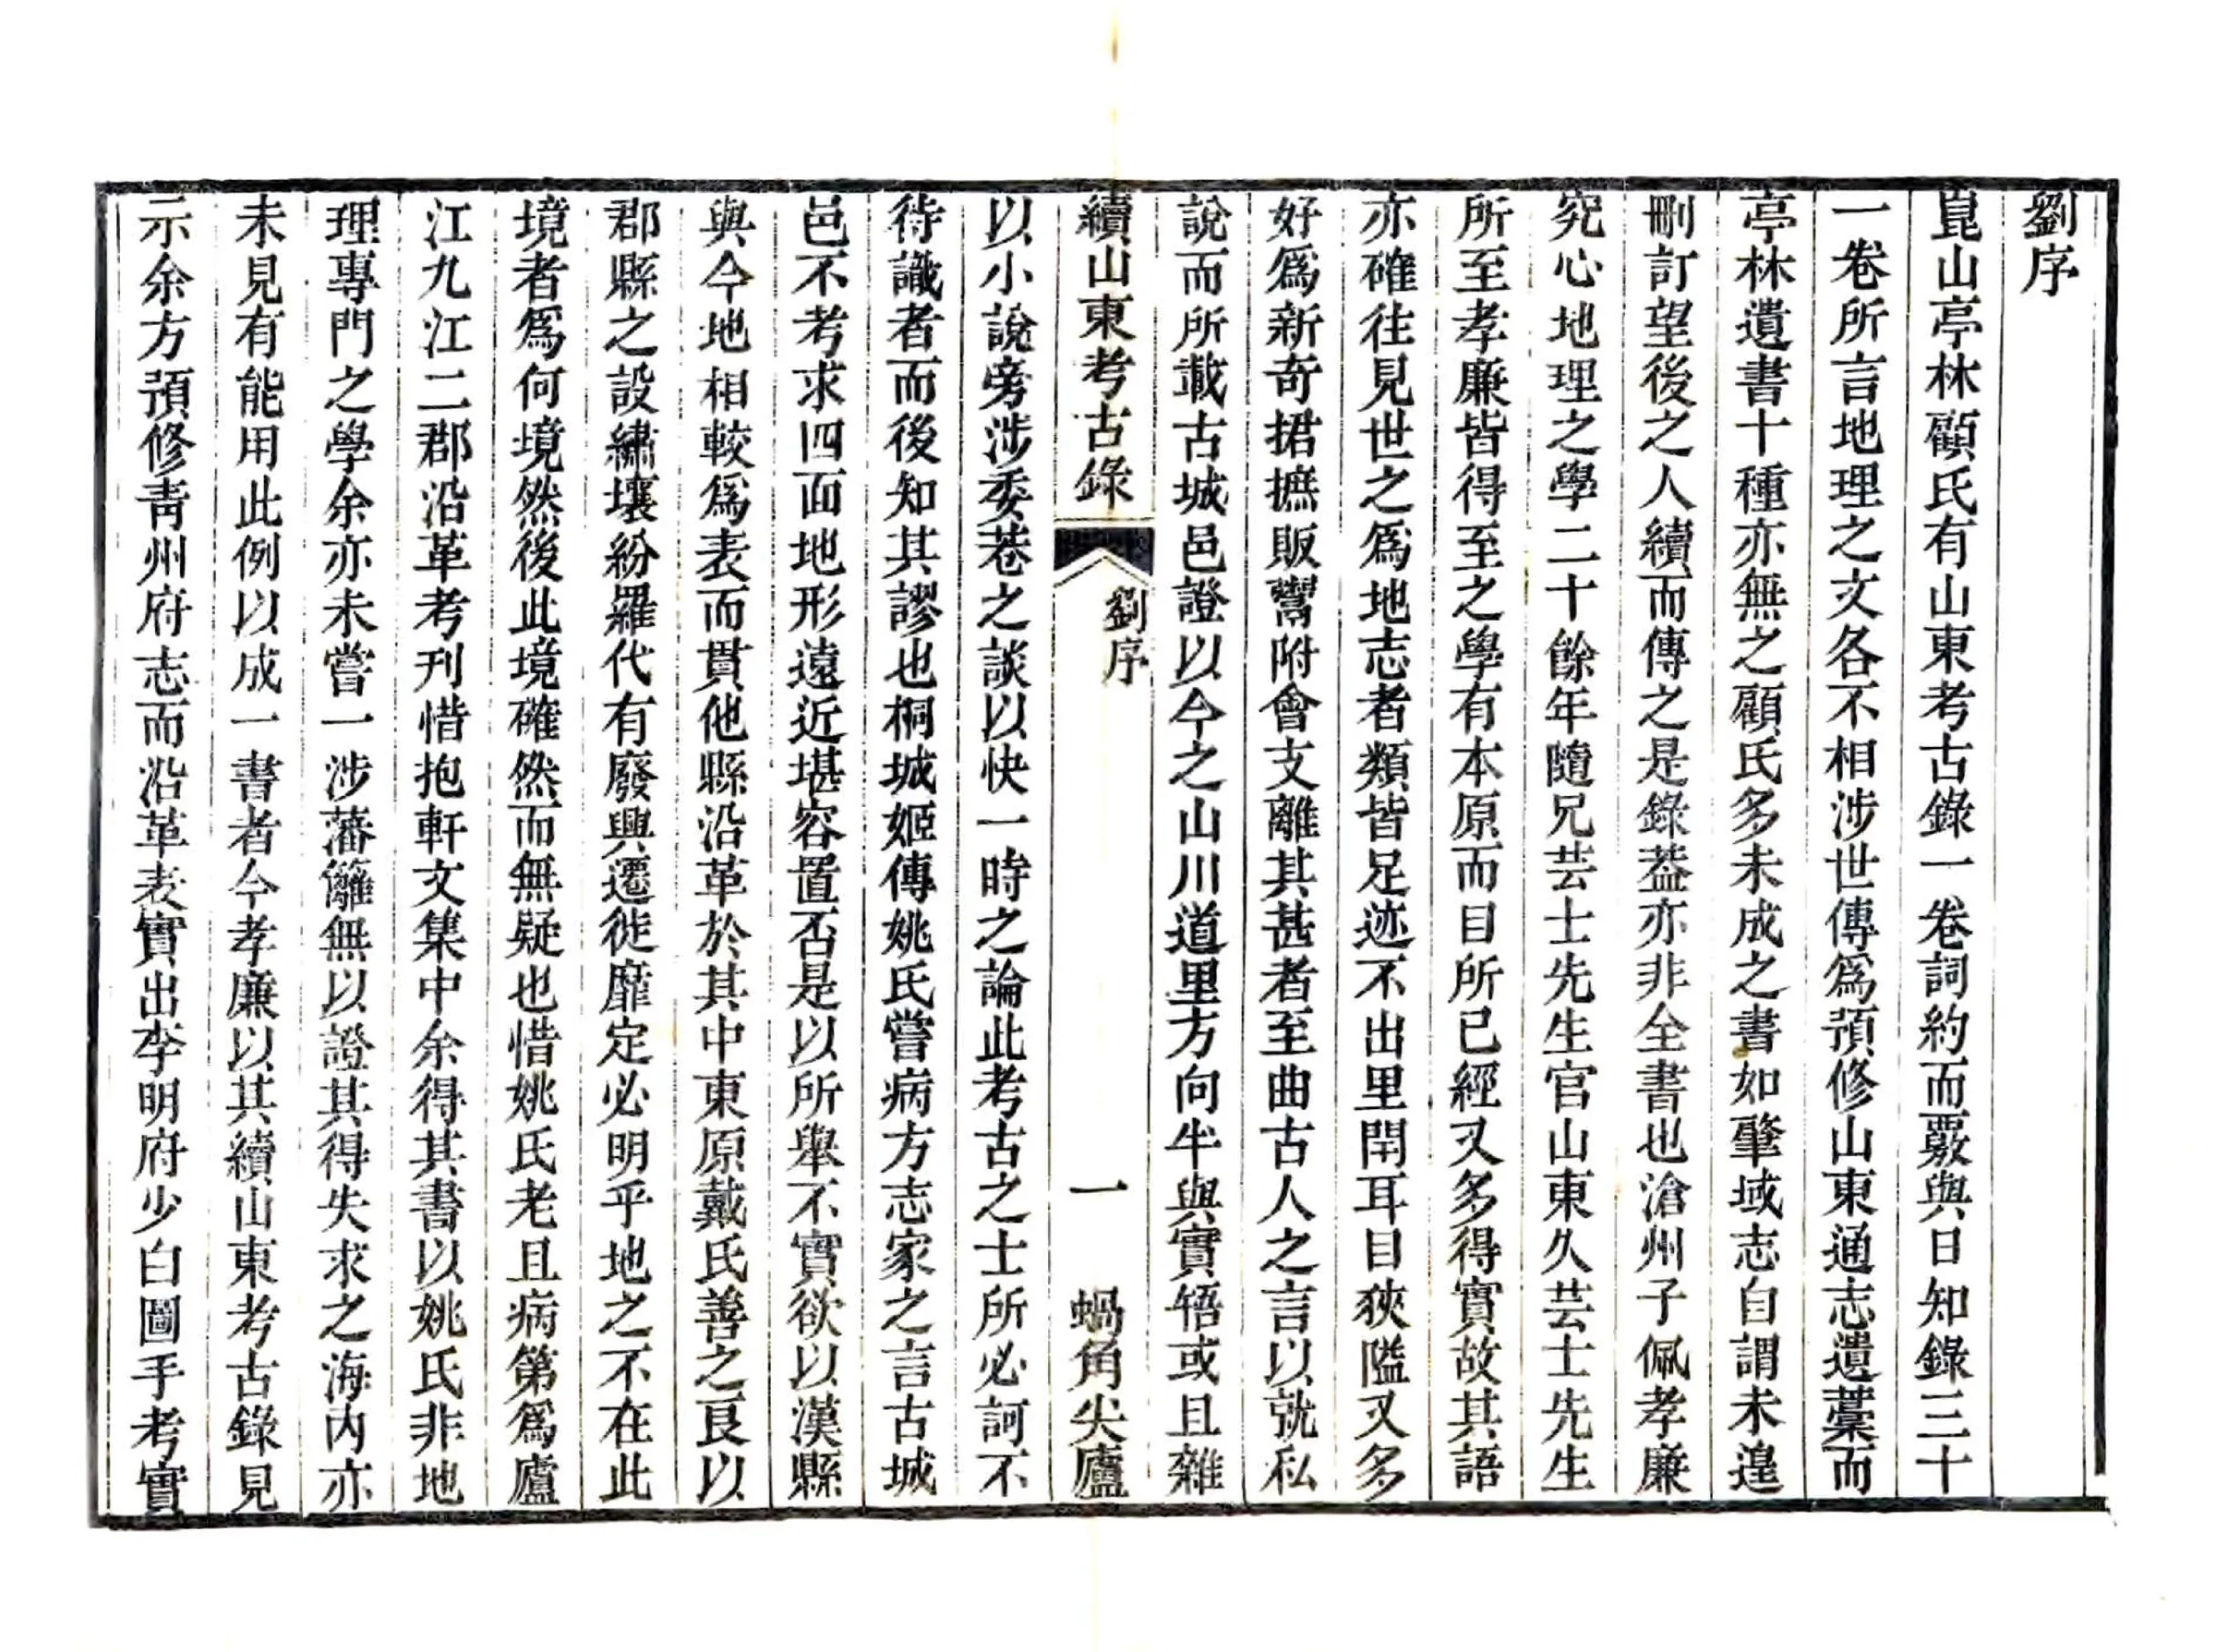 劉序
崑山亭林顧氏有山東考古錄一卷詞約而覈與日知錄三十
一卷所言地理之文各不相涉世傳爲預修山東通志遺藁而
亭林遺書十種亦無之顧氏多未成之書如肇域志自謂未遑
刪訂望後之人續而傳之是錄葢亦非全書也滄州子佩孝廉
究心地理之學二十餘年隨兄芸士先生官山東久芸士先生
所至孝廉皆得至之學有本原而目所已經又多得實故其語
亦確往見世之爲地志者類皆足迹不出里閈耳目狹隘又多
好爲新奇捃摭販鬻附會支離其甚者至曲古人之言以就私
說而所載古城邑證以今之山川道里方向半與實牾或且雜
續山東考古錄 劉序 一 蝸角尖廬
以小說旁涉委巷之談以快一時之論此考古之士所必訶不
待識者而後知其謬也桐城姬傳姚氏嘗病方志家之言古城
邑不考求四面地形遠近堪容置否是以所舉不實欲以漢縣
與今地相較爲表而貫他縣沿革於其中東原戴氏善之良以
郡縣之設繡壤紛羅代有廢興遷徙靡定必明乎地之不在此
境者爲何境然後此境確然而無疑也惜姚氏老且病第爲廬
江九江二郡沿革考刊惜抱軒文集中余得其書以姚氏非地
理專門之學余亦未嘗一涉藩籬無以證其得失求之海內亦
未見有能用此例以成一書者今孝廉以其續山東考古錄見
示余方預修靑州府志而沿革表實出李明府少白圖手考實